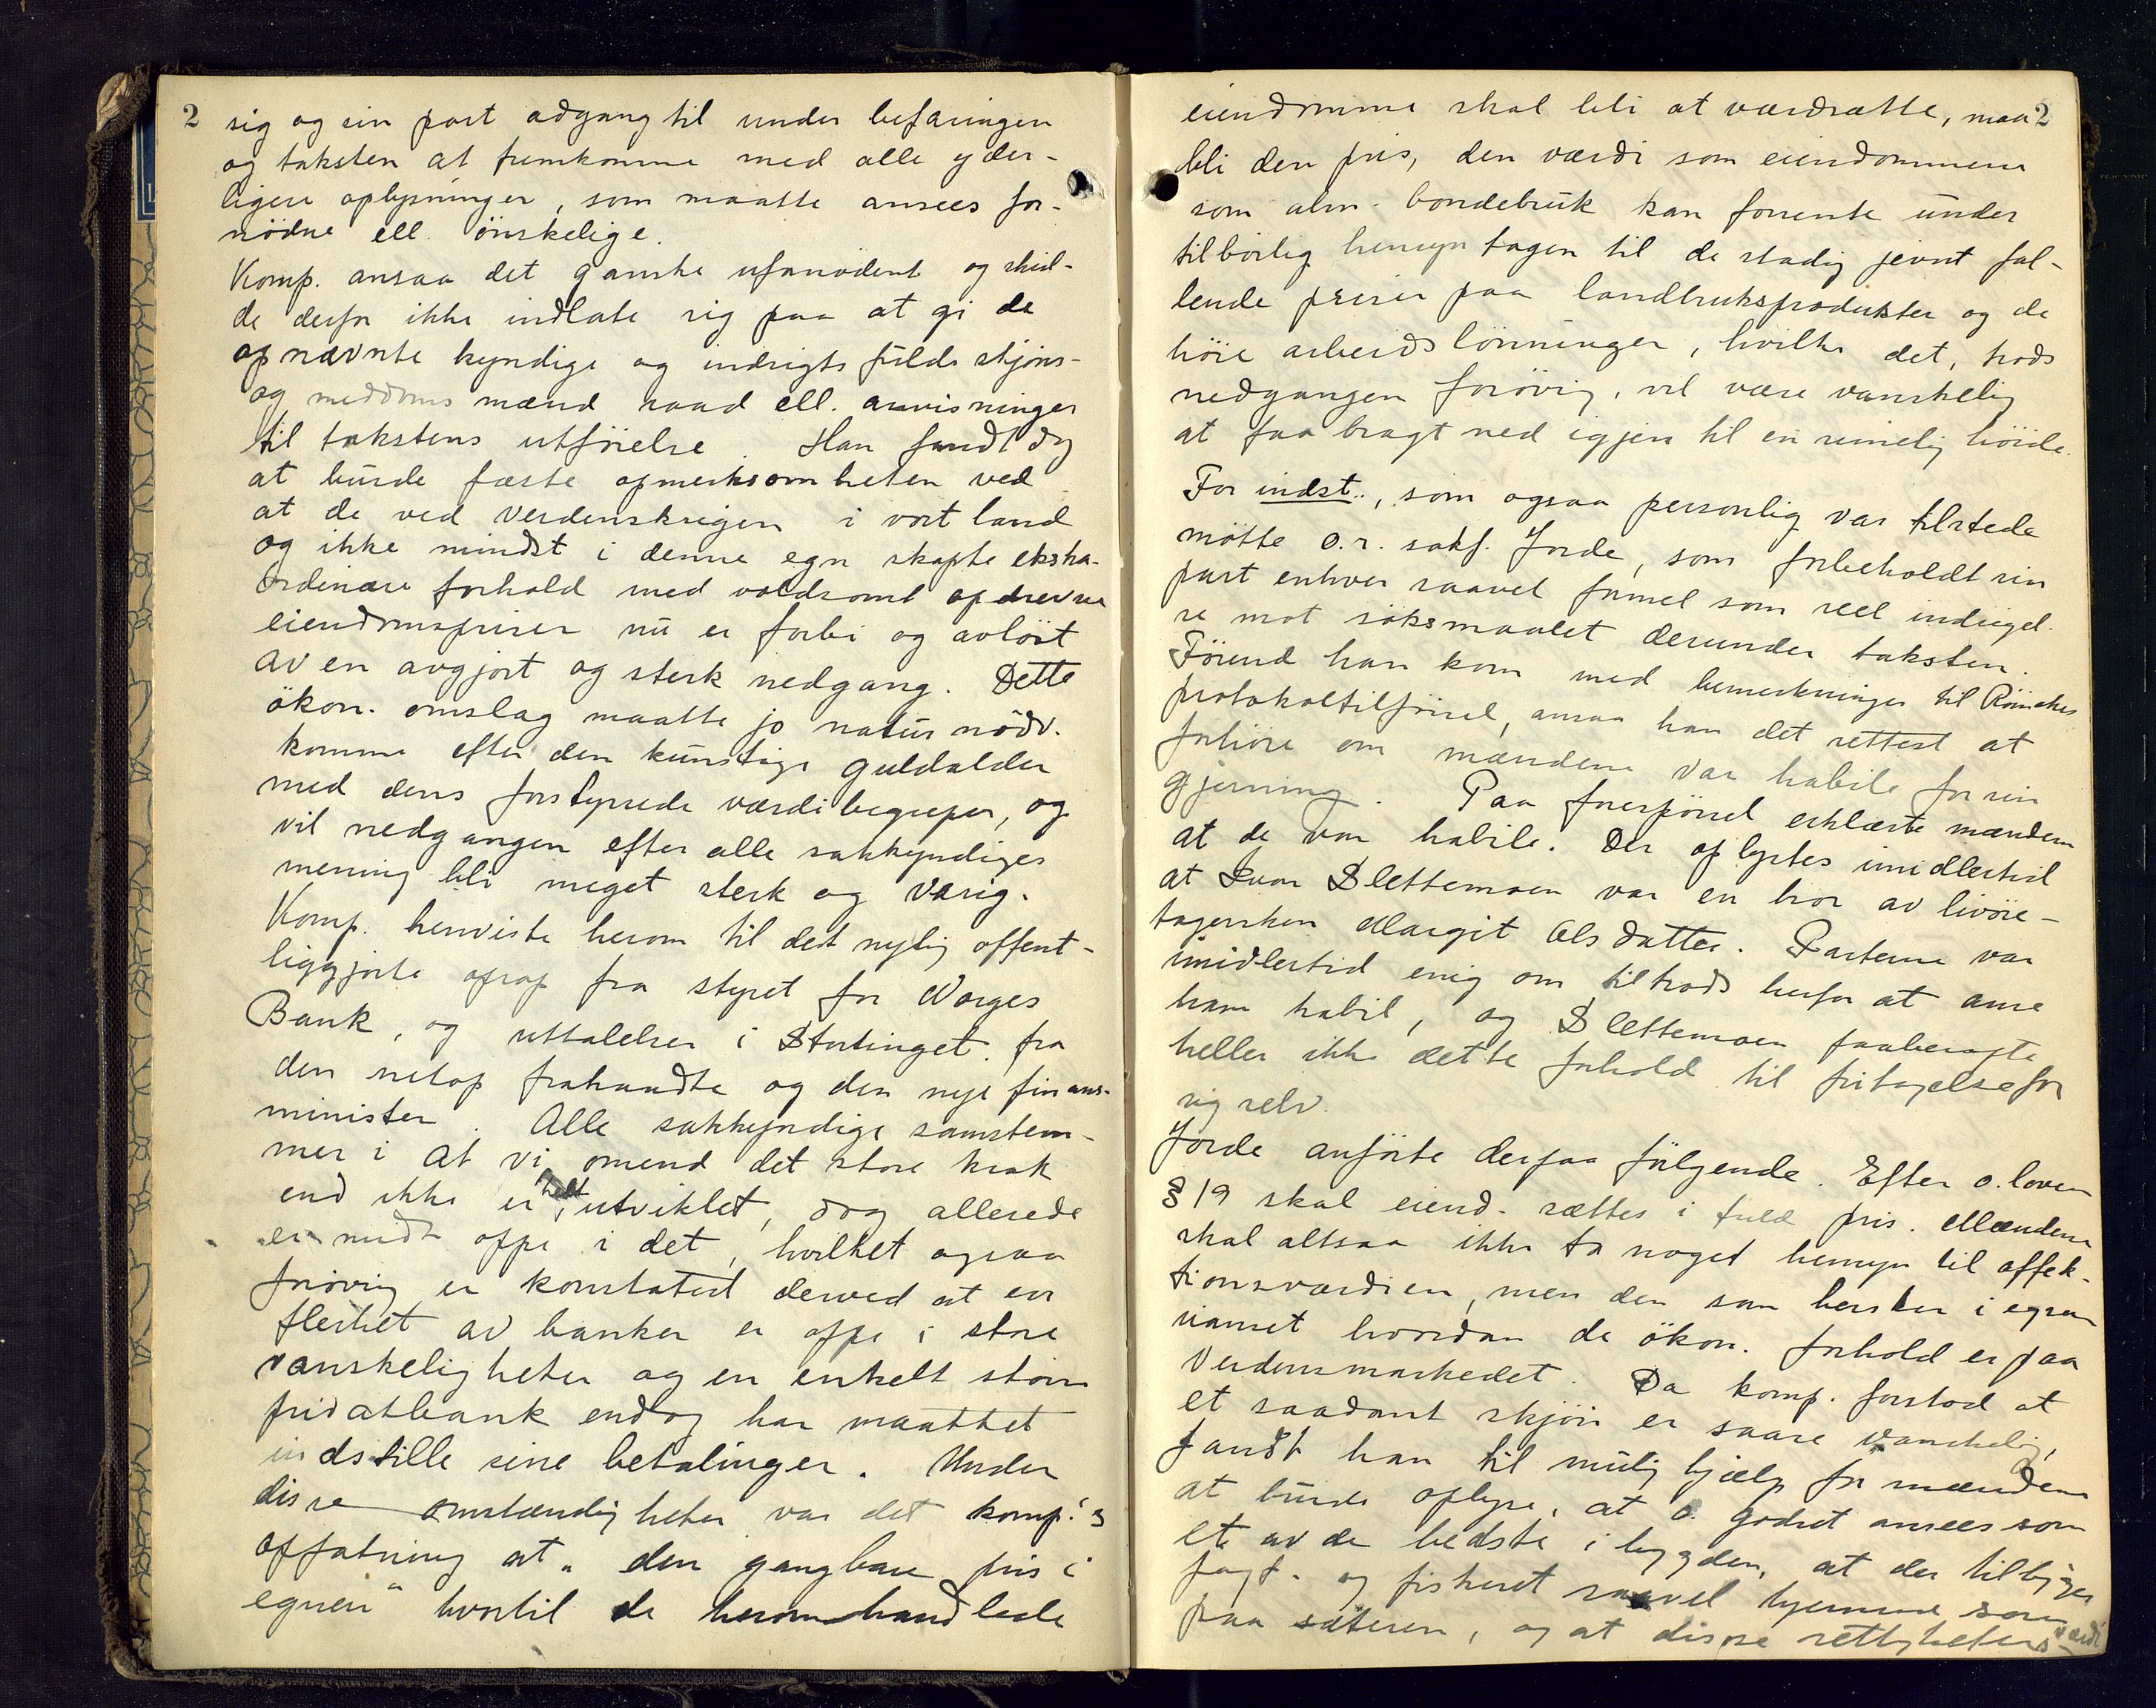 2
sig og sin part adgang til under befaringen
og taksten at fremkomme med alle yder-
ligere oplysninger, som maatte ansees for-
nödne ell. önskelige.
Komp. ansaa det ganske ufornödent og skul-
de derfor ikke indlate sig paa at gi de
opnævnte kyndige og indsigtsfulde skjöns-
og meddoms mænd raad ell. anvisninger
til takstens utförelse. Han fandt dog
at burde fæste opmerksomheten ved
at de ved verdenskrigen i vort land
og ikke mindst i denne egn skapte ekstra-
ordinære forhold med voldsomt opdrevne
eiendomspriser nu er forbi og avlöst
av en avgjort og sterk nedgang. Dette
ökon. omslag maatte jo naturnödv.
komme efter den kunstige guldalder
med dens forstyrrede værdibegreper, og
vil nedgangen efter alle sakkyndiges
mening bli meget sterk og varig.
Komp. henviste herom til det nylig offent-
liggjorte oprop fra styret for Norges
Bank, og uttalelser i Stortinget fra
den netop frakaadte og den nye finans-
minister. Alle sakkyndige samstem-
mer i at vi, omend det store krak
end ikke er helt utviklet, dog allerede
er midt oppe i det, hvilket ogsaa
forövrig er konstatert derved at en
flerhet av banker er oppe i store
vanskeligheter og en enkelt större
privatbank endog har maattet
indstille sine betalinger. Under
disse omstændigheter var det komp.'s
opfatning at "den gangbare pris i
egnen" hvortil de heromhandlede
eiendomme skal bli at værdsætte, maa 2
bli den pris, den værdi som eiendommene
som alm. bondebruk kan forrente under
tilbörlig hensyn tagen til de stadig jevnt fal-
lende priser paa landbruksprodukter og de
höie arbeidslönninger, hvilke det, trods
nedgangen forövrig, vil være vanskelig
at faa bragt ned igjen til en rimelig höide.
For indst., som ogsaa personlig var tilstede
mötte o.r. sakf. Jorde, som forbeholdt sin
part enhver saavel formel som reel indsigel-
se mot söksmaalet derunder taksten.
Förend han kom med bemerkninger til Römckes
protokoltilförsel, ansaa han det rettest at
forhöre om mændene var habile for sin
gjerning. Paa forespörsel erklærte mændene
at de var habile. Der oplystes imidlertid
at Ivar Slettemoen var en bror av livöre-
tagersken Margit Olsdatter. Parterne var
imidlertid enig om tiltrods herfor at anse
ham habil, og Slettemoen paaberopte
heller ikke dette forhold til fritagelse for
sig selv.
Jorde anförte derpaa fölgende. Efter o. loven
§ 19 skal eiend. sættes i fuld pris. Mændene
skal altsaa ikke ta noget hensyn til affek-
tionsværdien, men den som hersker i egnen
uanset hvordan de ökon. forhold er paa
verdensmarkedet. Da komp. forstod at
et saadant skjön er saare vanskelig,
fandt han til mulig hjælp for mændene
at burde oplyse, at o. godset ansees som
et av de bedste i bygden, at der tilligger
jagt- og fiskeret saavel hjemme som
paa sæteren, og at disse rettigheters værdi